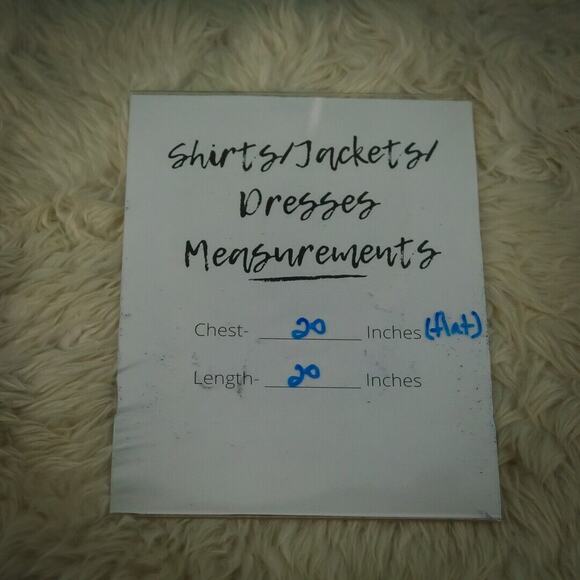 Shirts/Jackets/
Dresses
Measurements
Chest- 20 Inches (flat)
Length- 20 Inches